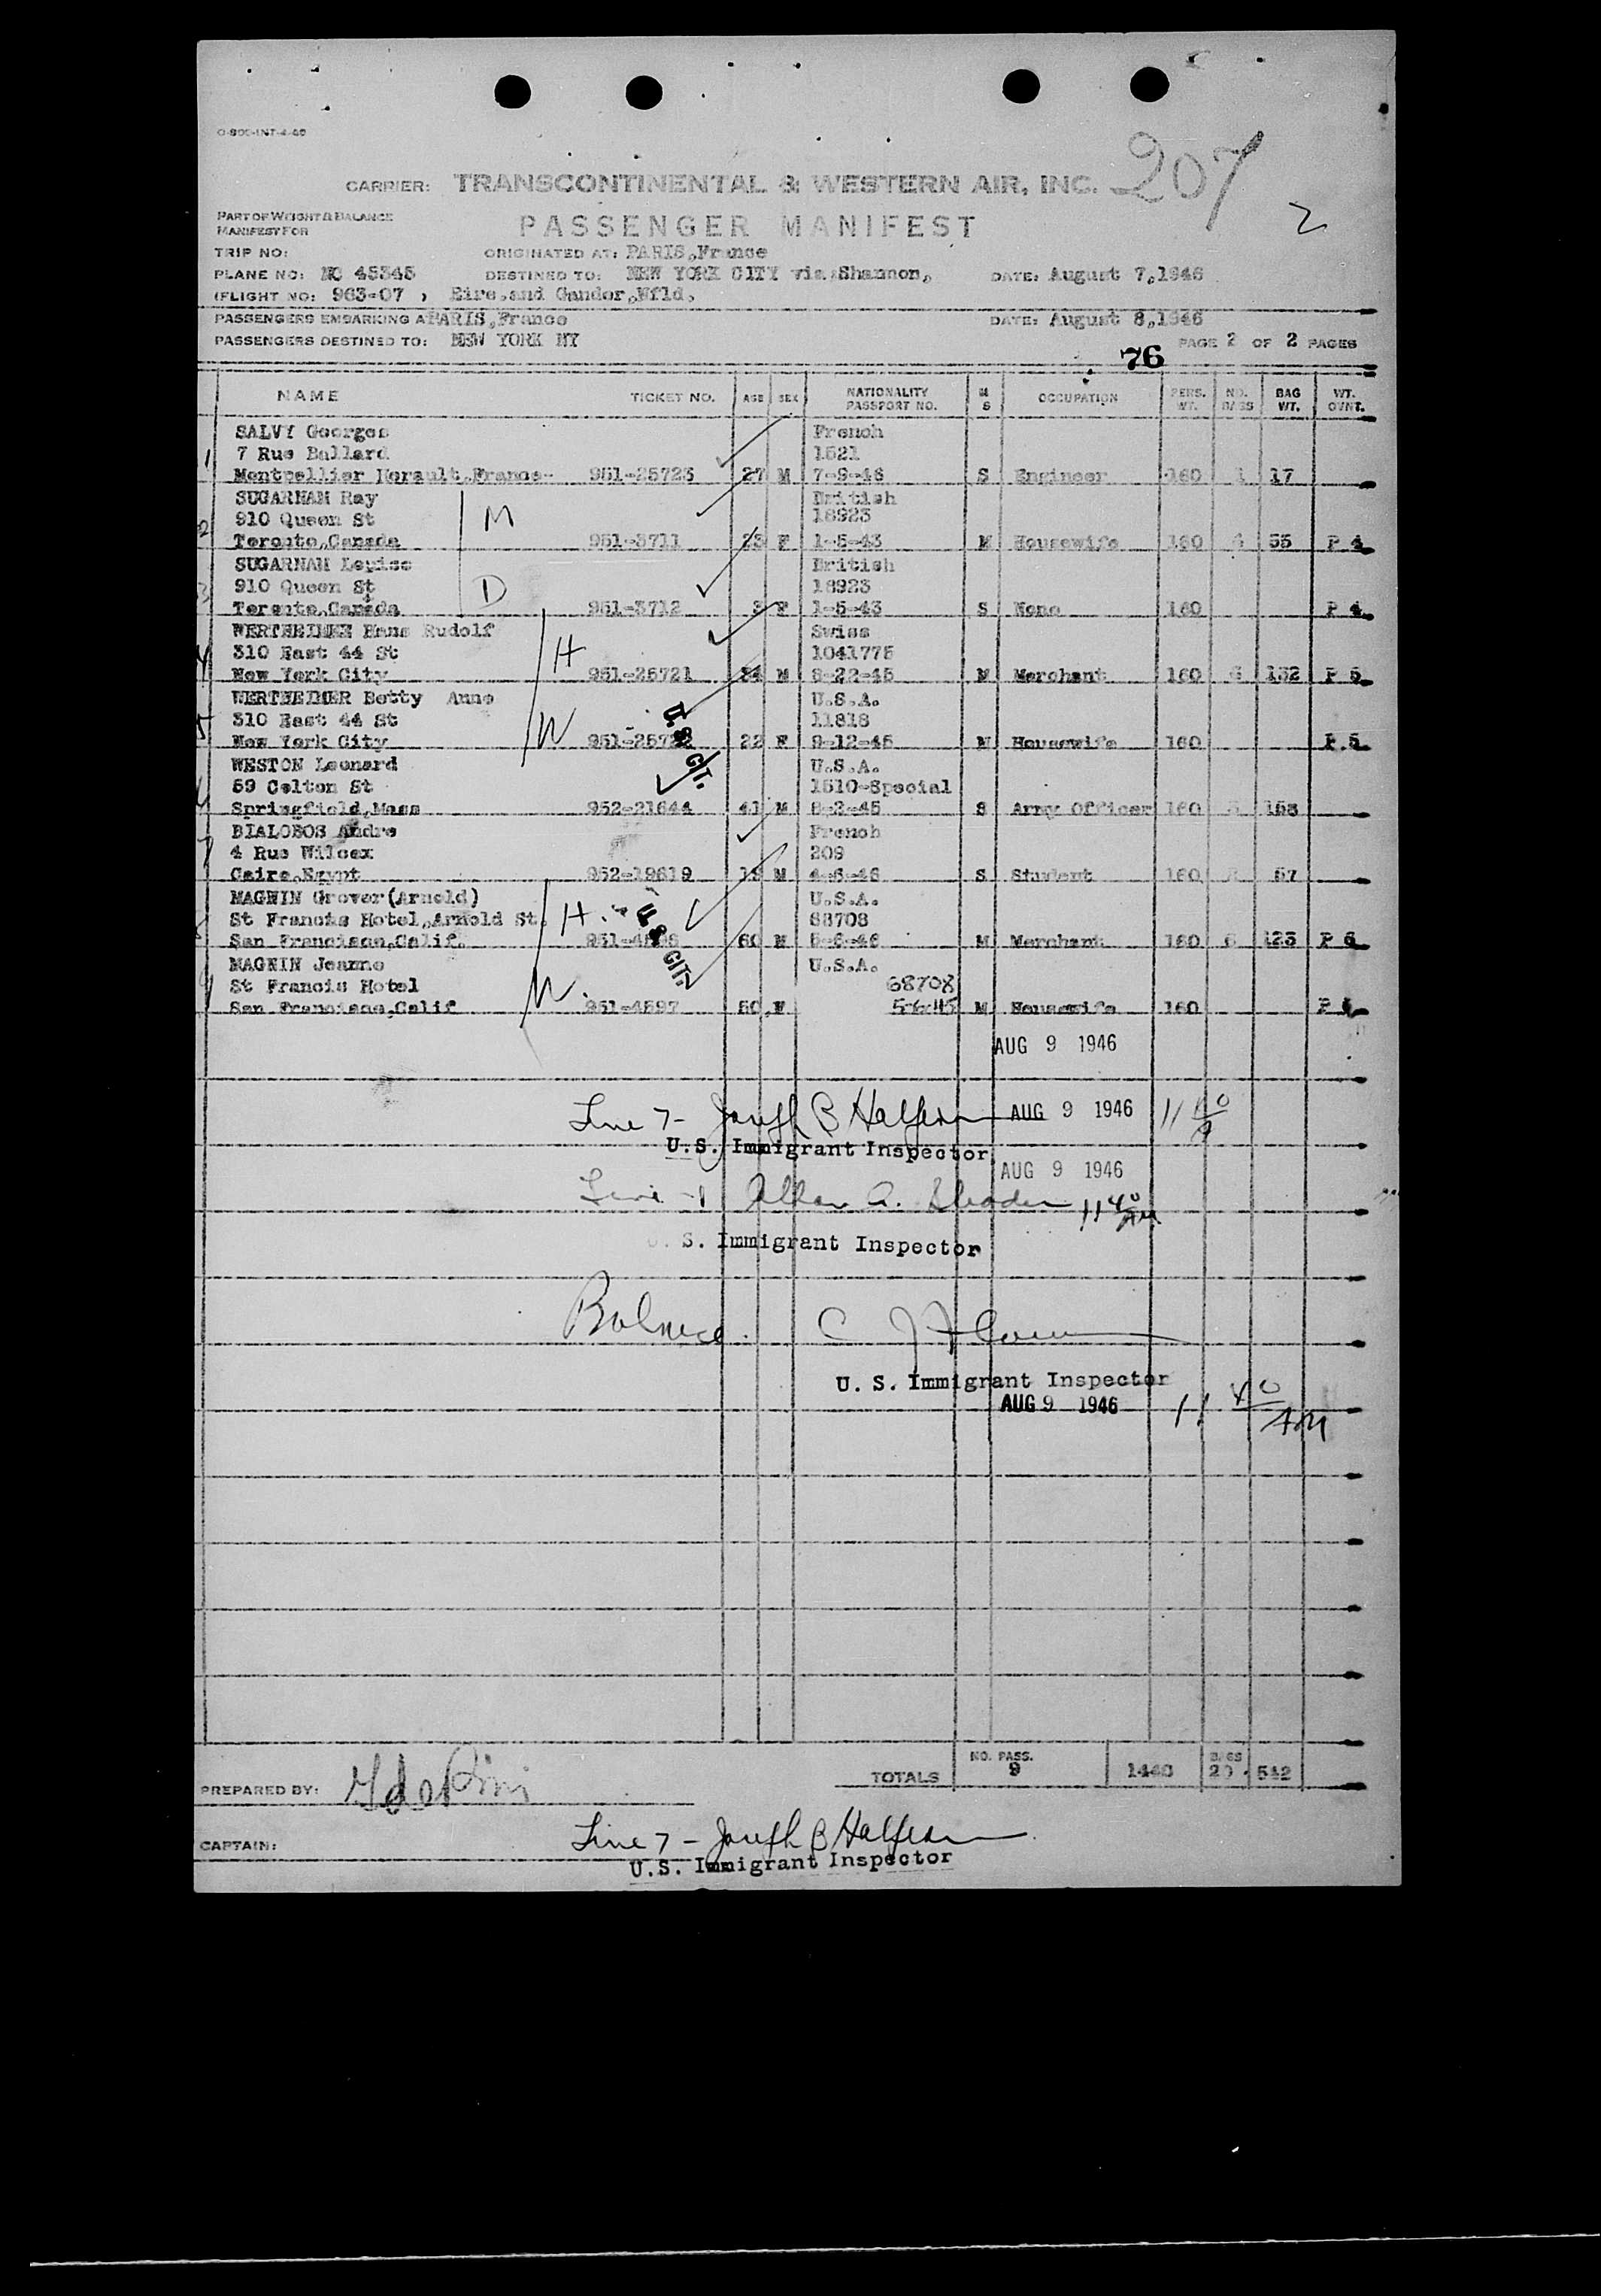 O-800-INT-4-46
207
CARRIER: TRANSCONTINENTAL & WESTERN AIR, INC.
2
PART OF WEIGHT & BALANCE
MANIFEST FOR
PASSENGER MANIFEST
TRIP NO: ORIGINATED AT: PARIS,France
PLANE NO: NC 45345 DESTINED TO: NEW YORK CITY via Shannon, DATE: August 7,1946
(FLIGHT NO: 963-07 , Eire,and Gander,Nfld,
PASSENGERS EMBARKING A PARIS,France DATE: August 8,1946
PASSENGERS DESTINED TO: NEW YORK NY PAGE 2 OF 2 PAGES
76
NAME TICKET NO. AGE SEX NATIONALITY PASSPORT NO. M S OCCUPATION PERS. WT. NO. BAGS BAG WT. WT. OVNT.
SALVY Georges French
7 Rue Ballard 1521
1 Montpellier Herault,France- 951-25723 27 M 7-9-46 S Engineer 160 1 17
SUGARMAN Ray British
910 Queen St M 18923
2 Toronto,Canada 951-3711 23 F 1-5-43 M Housewife 160 4 55 P 4
SUGARMAN Louise British
910 Queen St D 18923
3 Toronto,Canada 951-3712 3 F 1-5-43 S None 160 P 4
WERTHEIMER Hans Rudolf Swiss
310 East 44 St H 1041775
4 New York City 951-25721 34 M 8-22-45 M Merchant 160 132 P 5
WERTHEIMER Betty Anne U.S.A.
310 East 44 St 11818
5 New York City W 951-25722 22 F 9-12-45 M Housewife 160 P 5
U.S. CIT.
WESTON Leonard U.S.A.
59 Colton St 1510-Special
Springfield,Mass 952-21644 41 M 8-2-45 S Army Officer 160 158
BIALOBOS Andre French
4 Rue Wilcox 209
7 Caire,Egypt 952-19619 19 M 4-6-46 S Student 160 57
MAGNIN Grover(Arnold) U.S.A.
St Francis Hotel,Arnold St. H. 68708
San Francisco,Calif. 60 M 5-6-46 M Merchant 160 6 123 P 6
U.S. CIT.
MAGNIN Jeanne U.S.A.
St Francis Hotel 68708
9 San Francisco,Calif W. 951-4597 50 F 5-6-45 M Housewife 160 P 6
AUG 9 1946
Line 7 - Joseph B Halfern AUG 9 1946 11 40 A
U.S. Immigrant Inspector
AUG 9 1946
Line - 1 Allan A. 11 40 AM
S. Immigrant Inspector
Balance. C
U. S. Immigrant Inspector
AUG 9 1946 11 40 AM
TOTALS NO. PASS. 9 1440 BAGS 20 542
PREPARED BY:
CAPTAIN: Line 7 - Joseph B Halfern
U.S. Immigrant Inspector